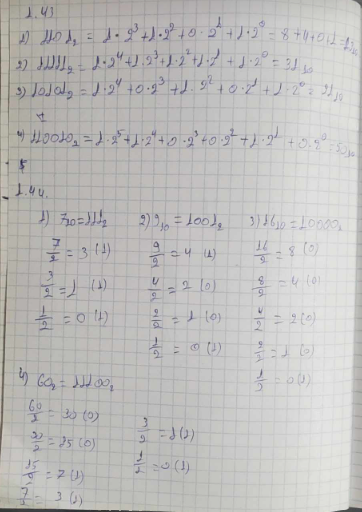 1.43
1) 1101₂ = 1·2³+1·2²+0·2¹+1·2⁰ = 8+4+0+1=13₁₀
2) 11111₂ = 1·2⁴+1·2³+1·2²+1·2¹+1·2⁰ = 31₁₀
3) 10101₂ = 1·2⁴+0·2³+1·2²+0·2¹+1·2⁰ = 21₁₀
4) 110010₂ = 1·2⁵+1·2⁴+0·2³+0·2²+1·2¹+0·2⁰=50₁₀
1.44.
1) 7₁₀=111₂
7/2 = 3 (1)
3/2 = 1 (1)
1/2 = 0 (1)
2) 9₁₀ = 1001₂
9/2 = 4 (1)
4/2 = 2 (0)
2/2 = 1 (0)
1/2 = 0 (1)
3) 16₁₀ = 10000₂
16/2 = 8 (0)
8/2 = 4 (0)
4/2 = 2 (0)
2/2 = 1 (0)
1/2 = 0 (1)
4) 60₂ = 111100₂
60/2 = 30 (0)
30/2 = 15 (0)
15/2 = 7 (1)
7/2 = 3 (1)
3/2 = 1 (1)
1/2 = 0 (1)